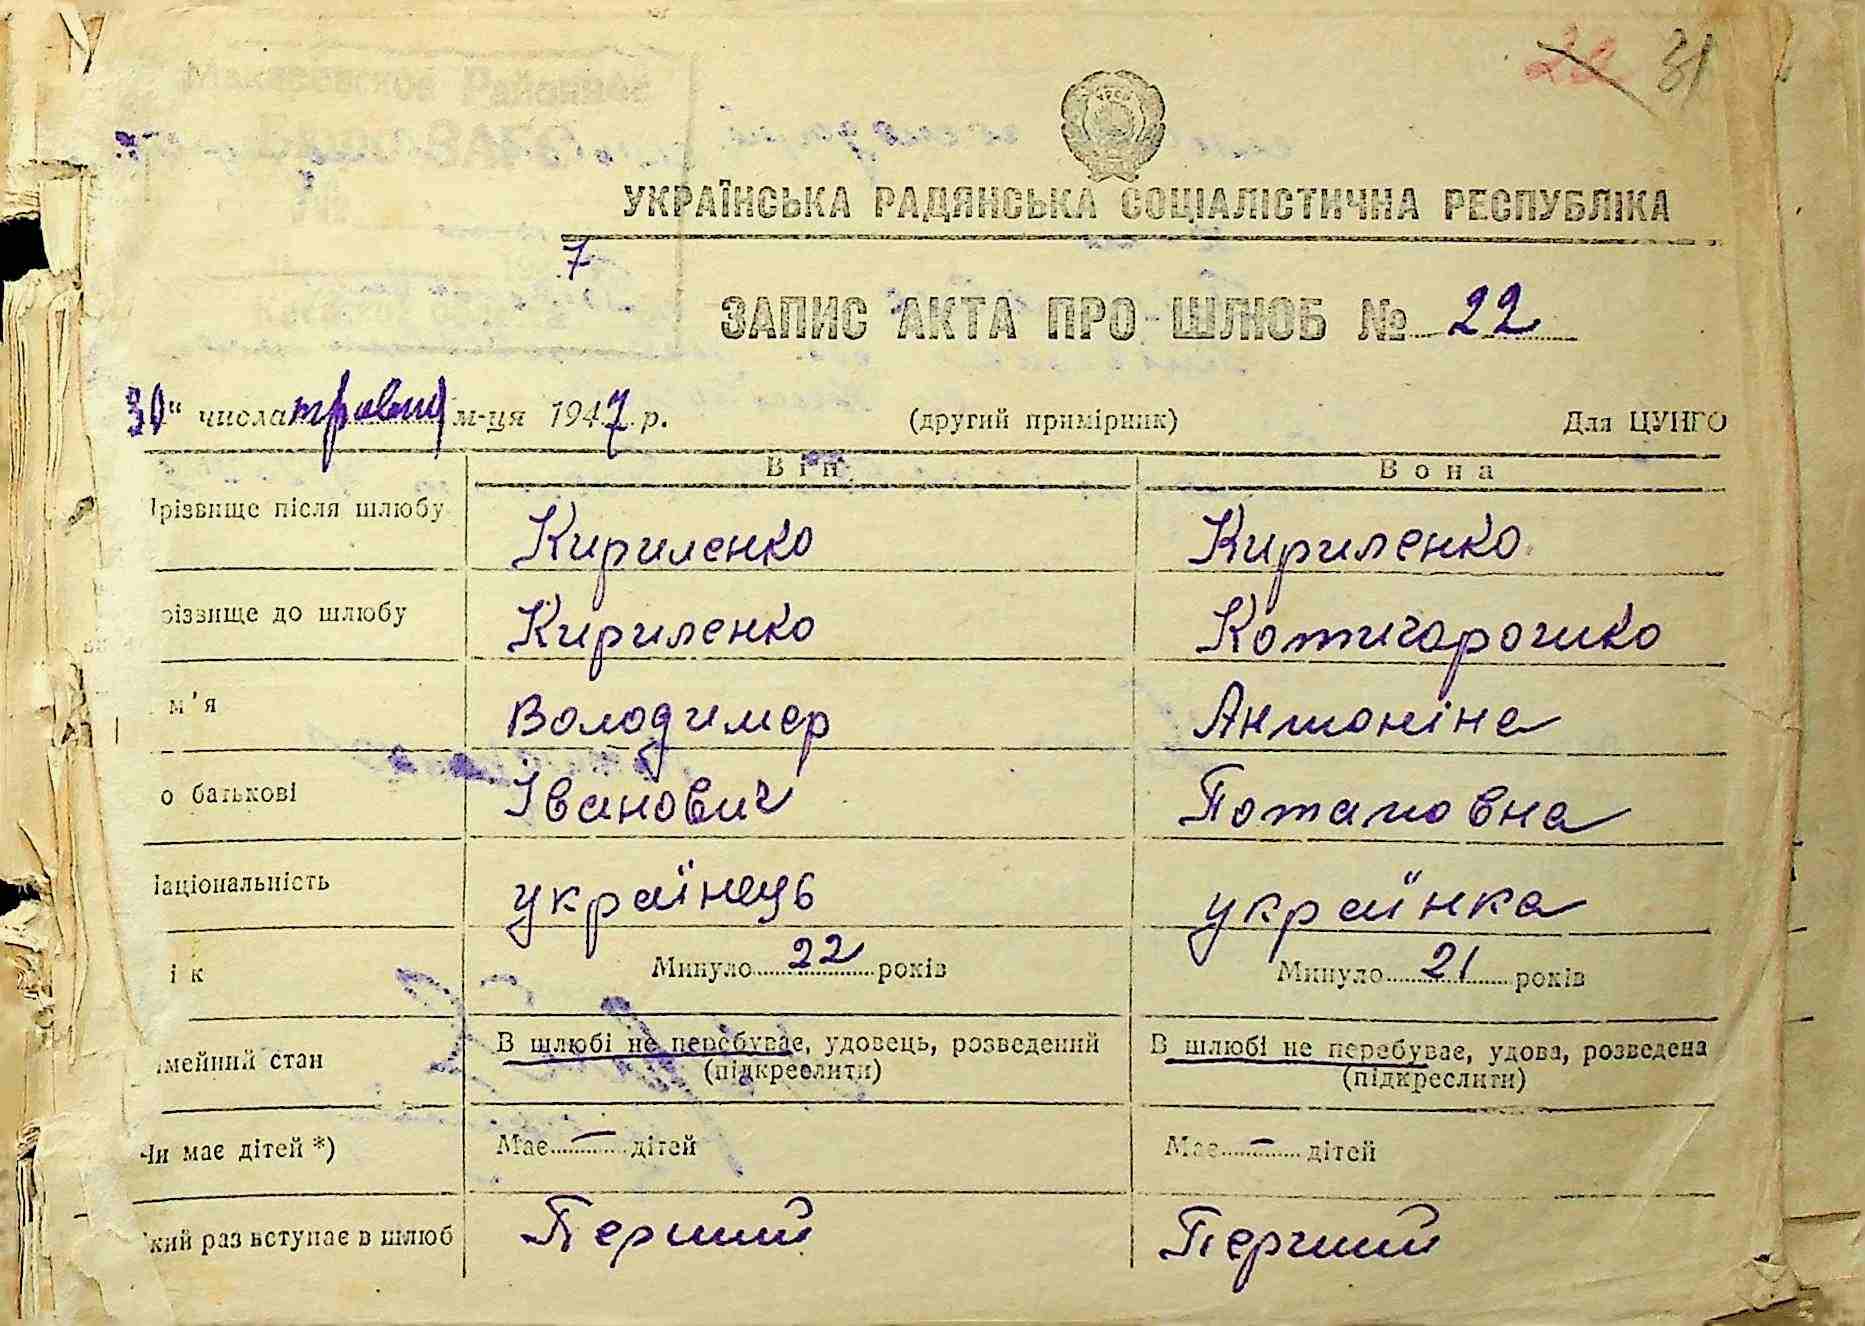 22 31
УКРАЇНСЬКА РАДЯНСЬКА СОЦІАЛІСТИЧНА РЕСПУБЛІКА
7
ЗАПИС АКТА ПРО ШЛЮБ № 22
30" числа травня м-ця 1947 р. (другий примірник) Для ЦУНГО
Він Вона
різвище після шлюбу Кириленко Кириленко
різвище до шлюбу Кириленко Котигорошко
м'я Володимер Антоніна
о батькові Іванович Потаповна
аціональність українець українка
ік Минуло 22 років Минуло 21 років
імейний стан В шлюбі не перебуває, удовець, розведений В шлюбі не перебуває, удова, розведена
(підкреслити) (підкреслити)
Чи має дітей *) Має — дітей Має — дітей
кий раз вступає в шлюб Перший Перший